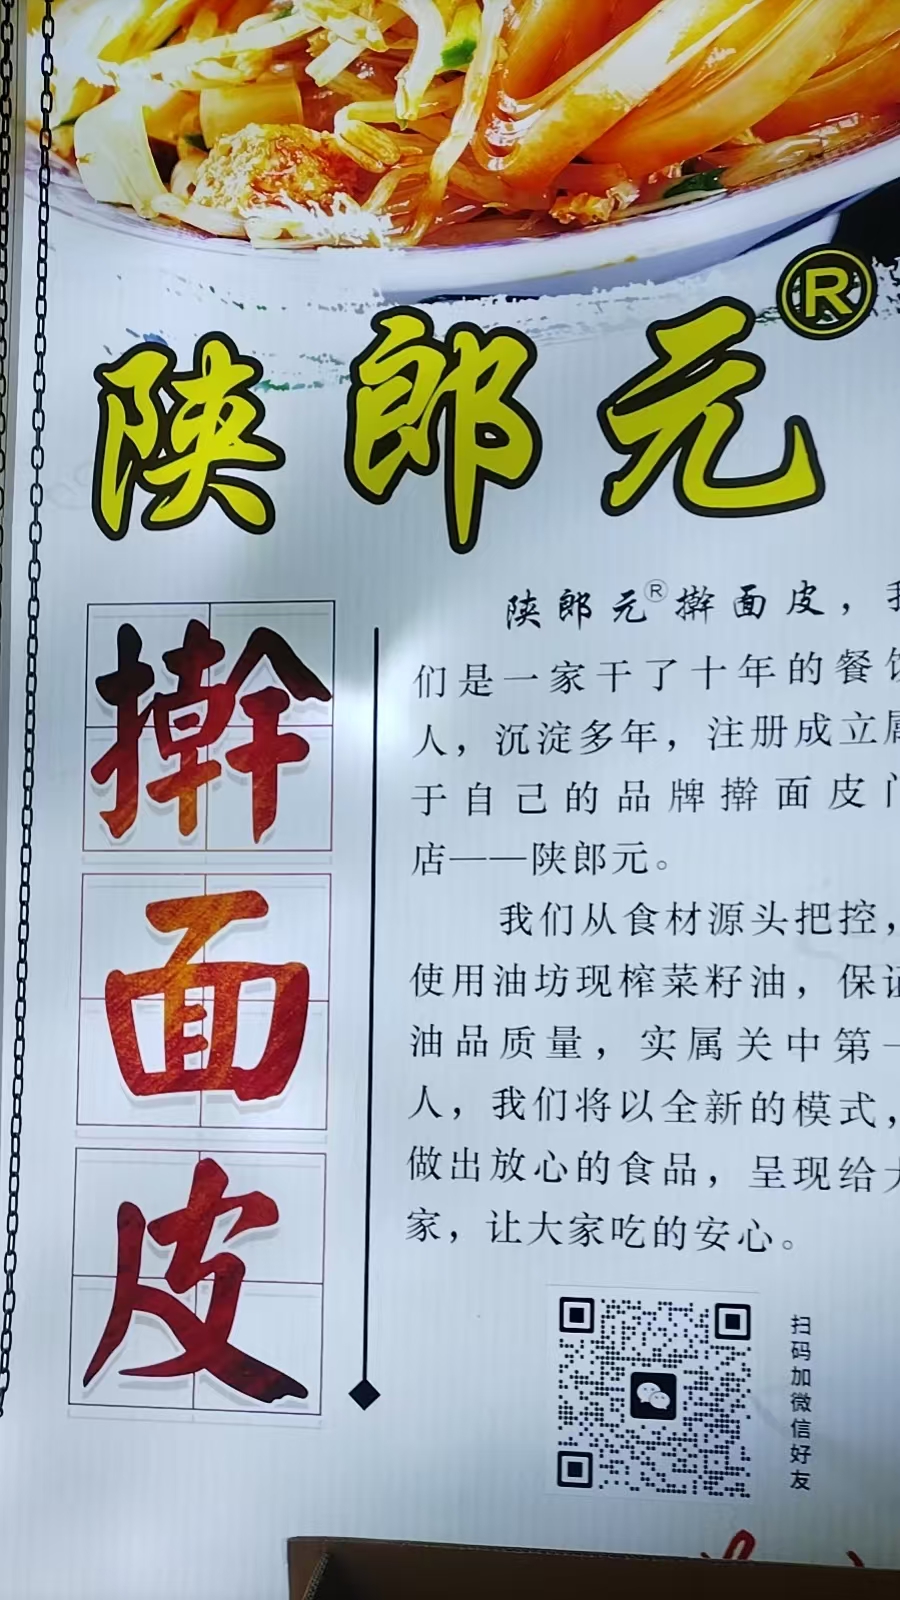 陕郎元®
擀面皮
陕郎元®擀面皮，我
们是一家干了十年的餐饮
人，沉淀多年，注册成立属
于自己的品牌擀面皮门
店——陕郎元。
我们从食材源头把控，
使用油坊现榨菜籽油，保证
油品质量，实属关中第一
人，我们将以全新的模式，
做出放心的食品，呈现给大
家，让大家吃的安心。
扫码加微信好友